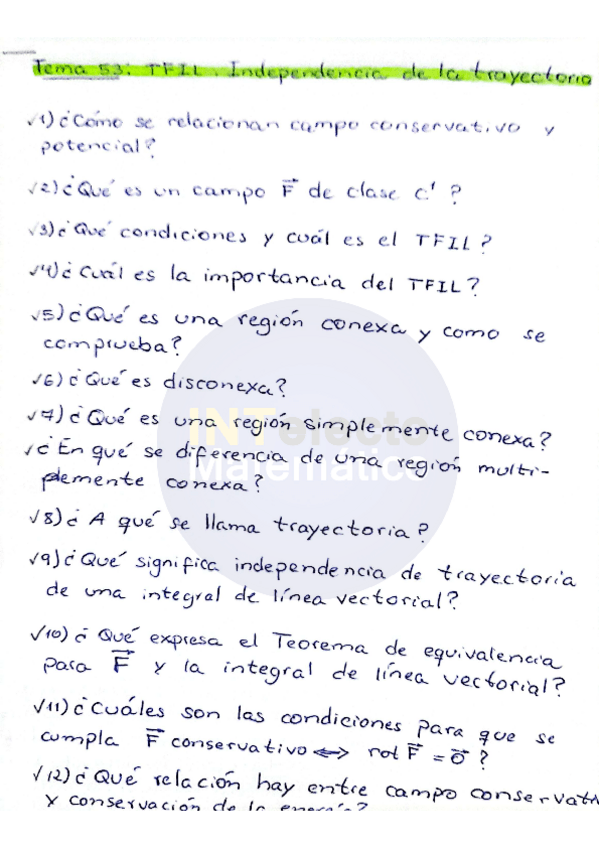 Tema 53: TFIL. Independencia de la trayectoria
√1) ¿Cómo se relacionan campo conservativo y
potencial?
√2) ¿Qué es un campo F⃗ de clase C¹ ?
√3) ¿Qué condiciones y cuál es el TFIL?
√4) ¿Cuál es la importancia del TFIL?
√5) ¿Qué es una región conexa y como se
comprueba?
√6) ¿Qué es disconexa?
√7) ¿Qué es una región simplemente conexa?
√¿En qué se diferencia de una región multi-
plemente conexa?
INTelecto
Matemático
√8) ¿A qué se llama trayectoria?
√9) ¿Qué significa independencia de trayectoria
de una integral de línea vectorial?
√10) ¿Qué expresa el Teorema de equivalencia
para F⃗ y la integral de línea vectorial?
√11) ¿Cuáles son las condiciones para que se
cumpla F⃗ conservativo ⟺ rot F⃗ = 0⃗ ?
√12) ¿Qué relación hay entre campo conservati
y conservación de la energía?